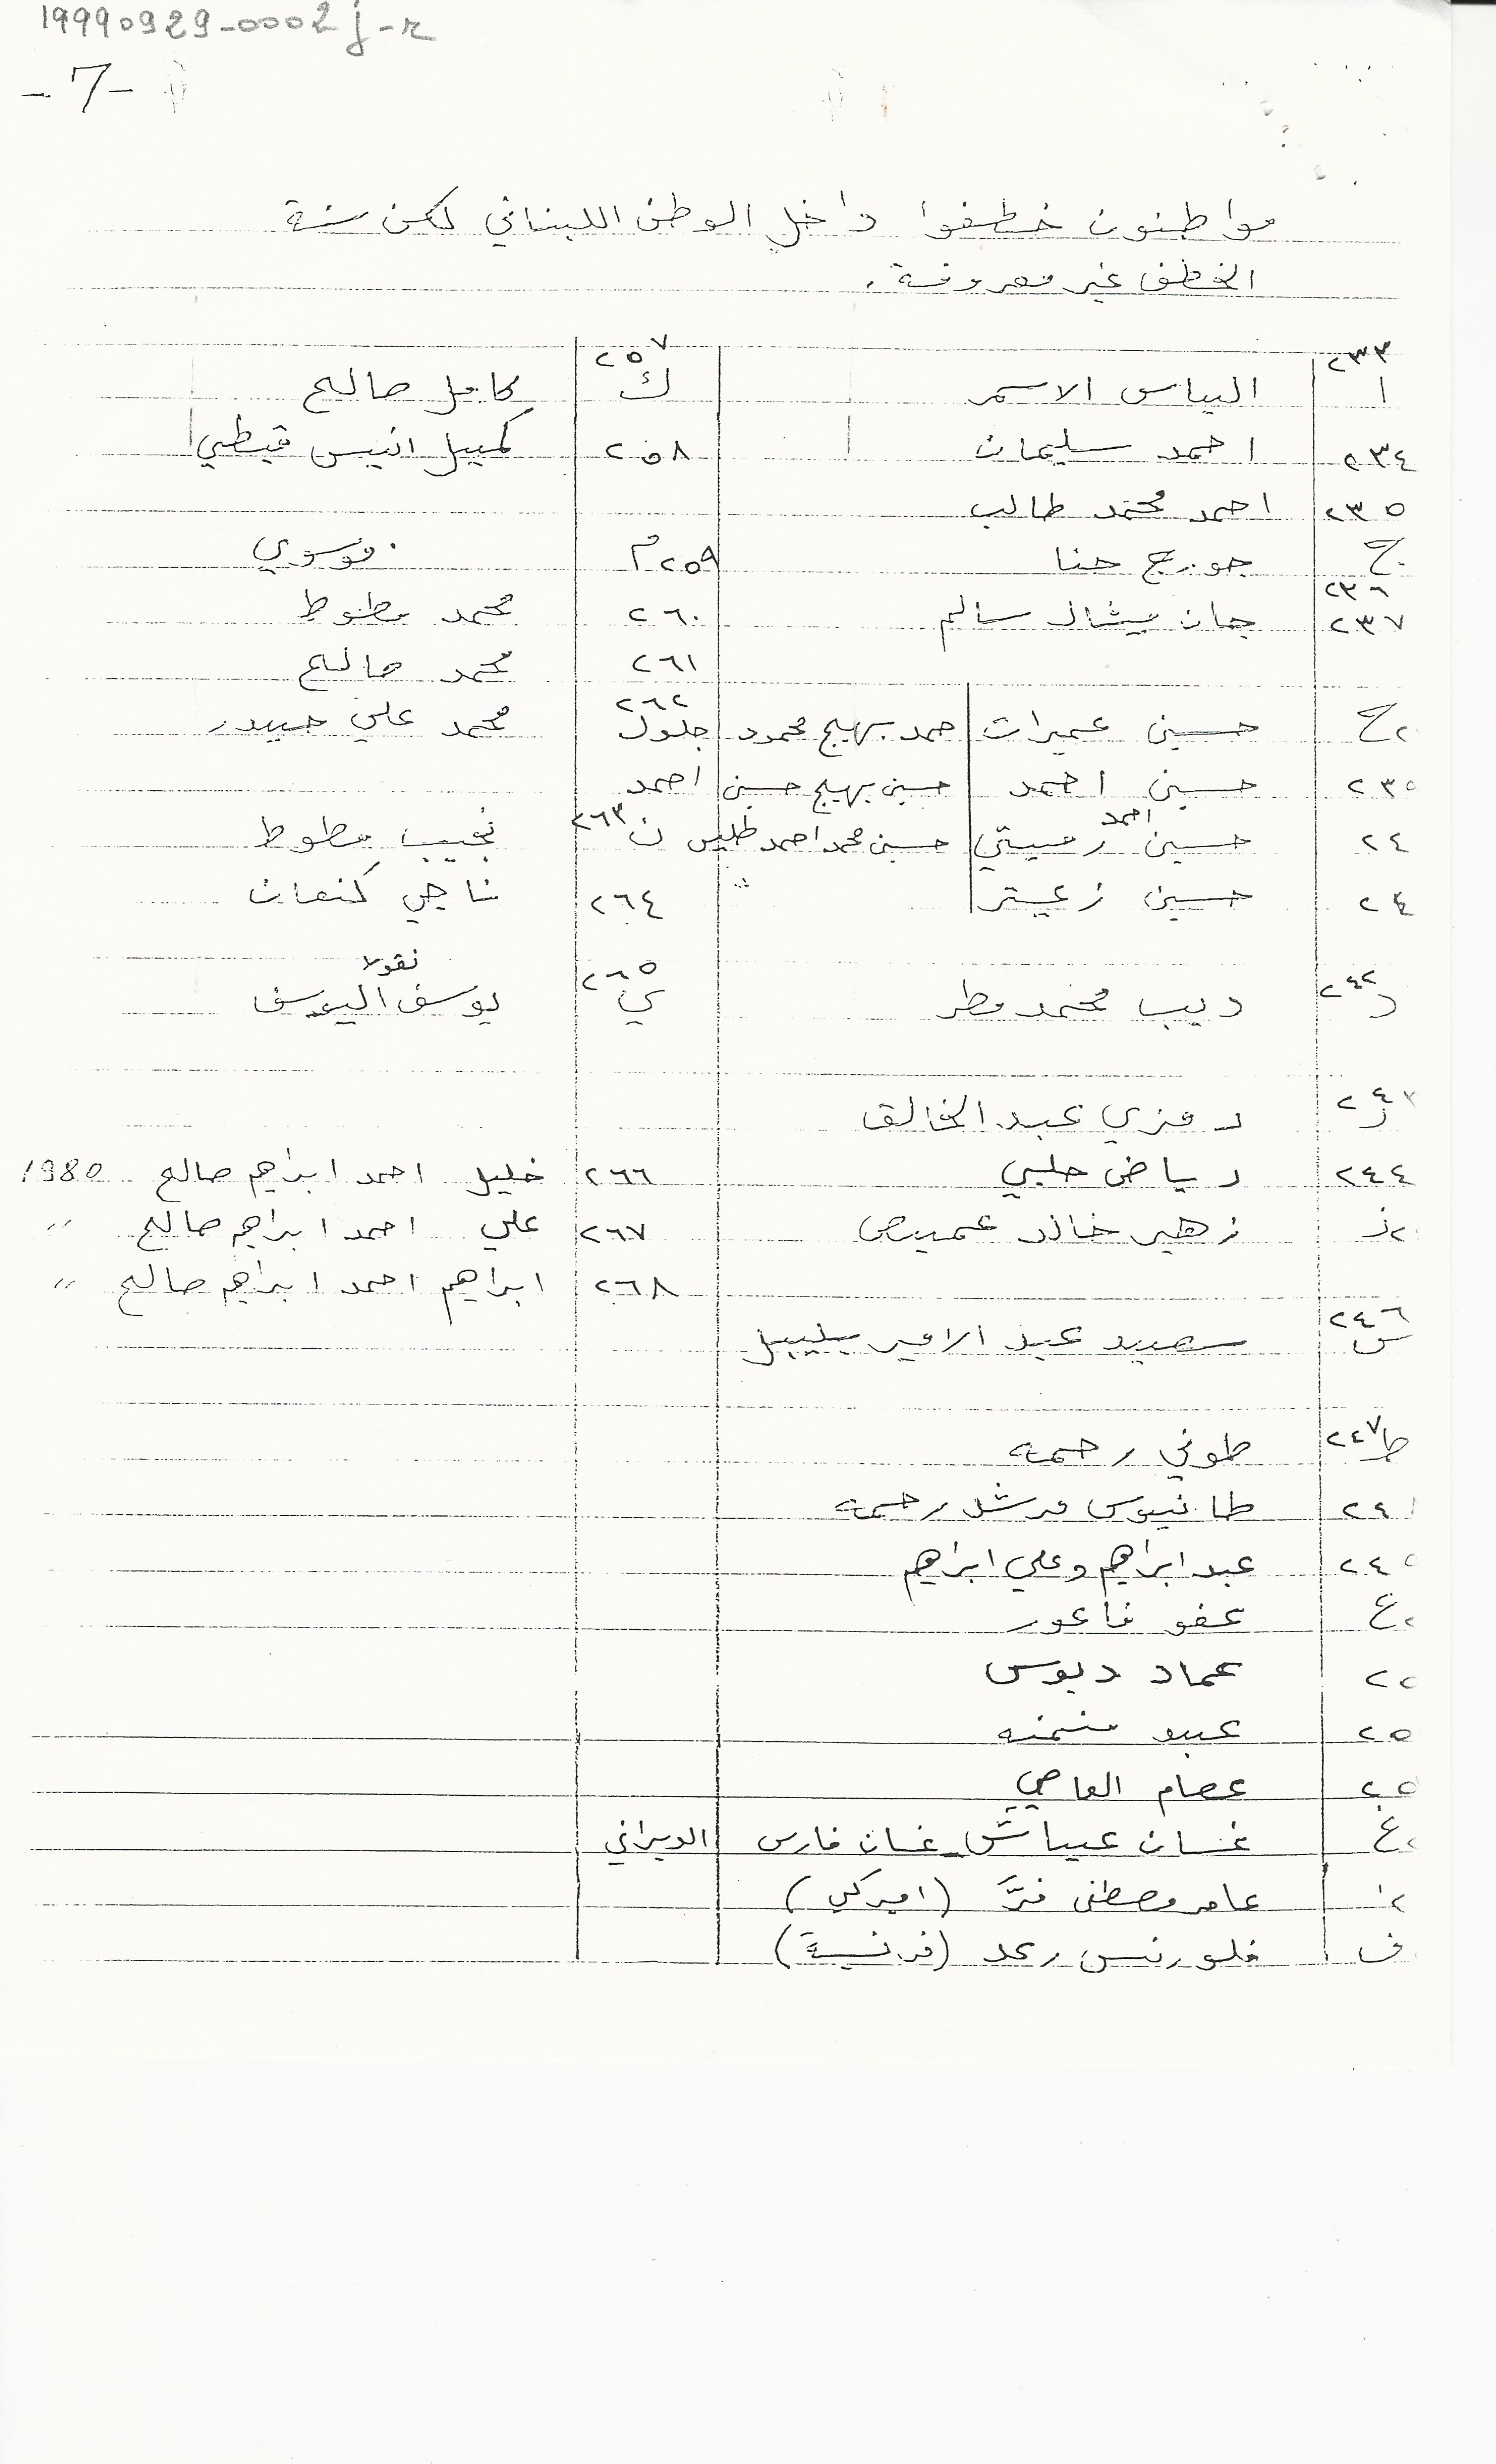 19990929-0002j-r
-7-
مواطنون خطفوا داخل الوطن اللبناني لكن سنة
الخطف غير معروفة .
٢٣٣ ا الياس الاسمر ٢٥٧ ك كامل صالح
٢٣٤ احمد سليمان ٢٥٨ كميل انيس قيطي
٢٣٥ احمد محمد طالب
ج جورج حنا ٢٥٩ م موسوي
٢٣٦
٢٣٧ جان ميشال سالم ٢٦٠ محمد مطوط
٢٦١ محمد صالح
ح حسين عميرات حمد بهيج محمود جلول ٢٦٢ محمد علي حيدر
٢٣ حسين احمد حسين بهيج حسين احمد
٢٤ حسين احمد رميتي حسين محمد احمد طليس ن ٢٦٣ نجيب مطوط
٢٤ حسين زعيتر ٢٦٤ ناجي كنعان
٢٤٢ د ديب محمد مطر ٢٦٥ ي يوسف نقولا اليوسف
٢٤٣ ر رمزي عبد الخالق
٢٤٤ رياض حلبي ٢٦٦ خليل احمد ابراهيم صالح 1980
ز زهير خالد عميص ٢٦٧ علي احمد ابراهيم صالح "
٢٦٨ ابراهيم احمد ابراهيم صالح "
٢٤٦ س سعيد عبد الامير بليبل
٢٤٧ ط طوني رحمه
٢٤ طانيوس مرشد رحمه
٢٤ عبد ابراهيم وعلي ابراهيم
ع عفو فاعور
٢٥ عماد دبوس
٢٥ عبد
٢٥ عصام العاصي
غ غسان عياش - غسان فارس الديراني
عامر مصطفى فرَّ (اميركي)
ف فلورنس رعد (فرنسية)